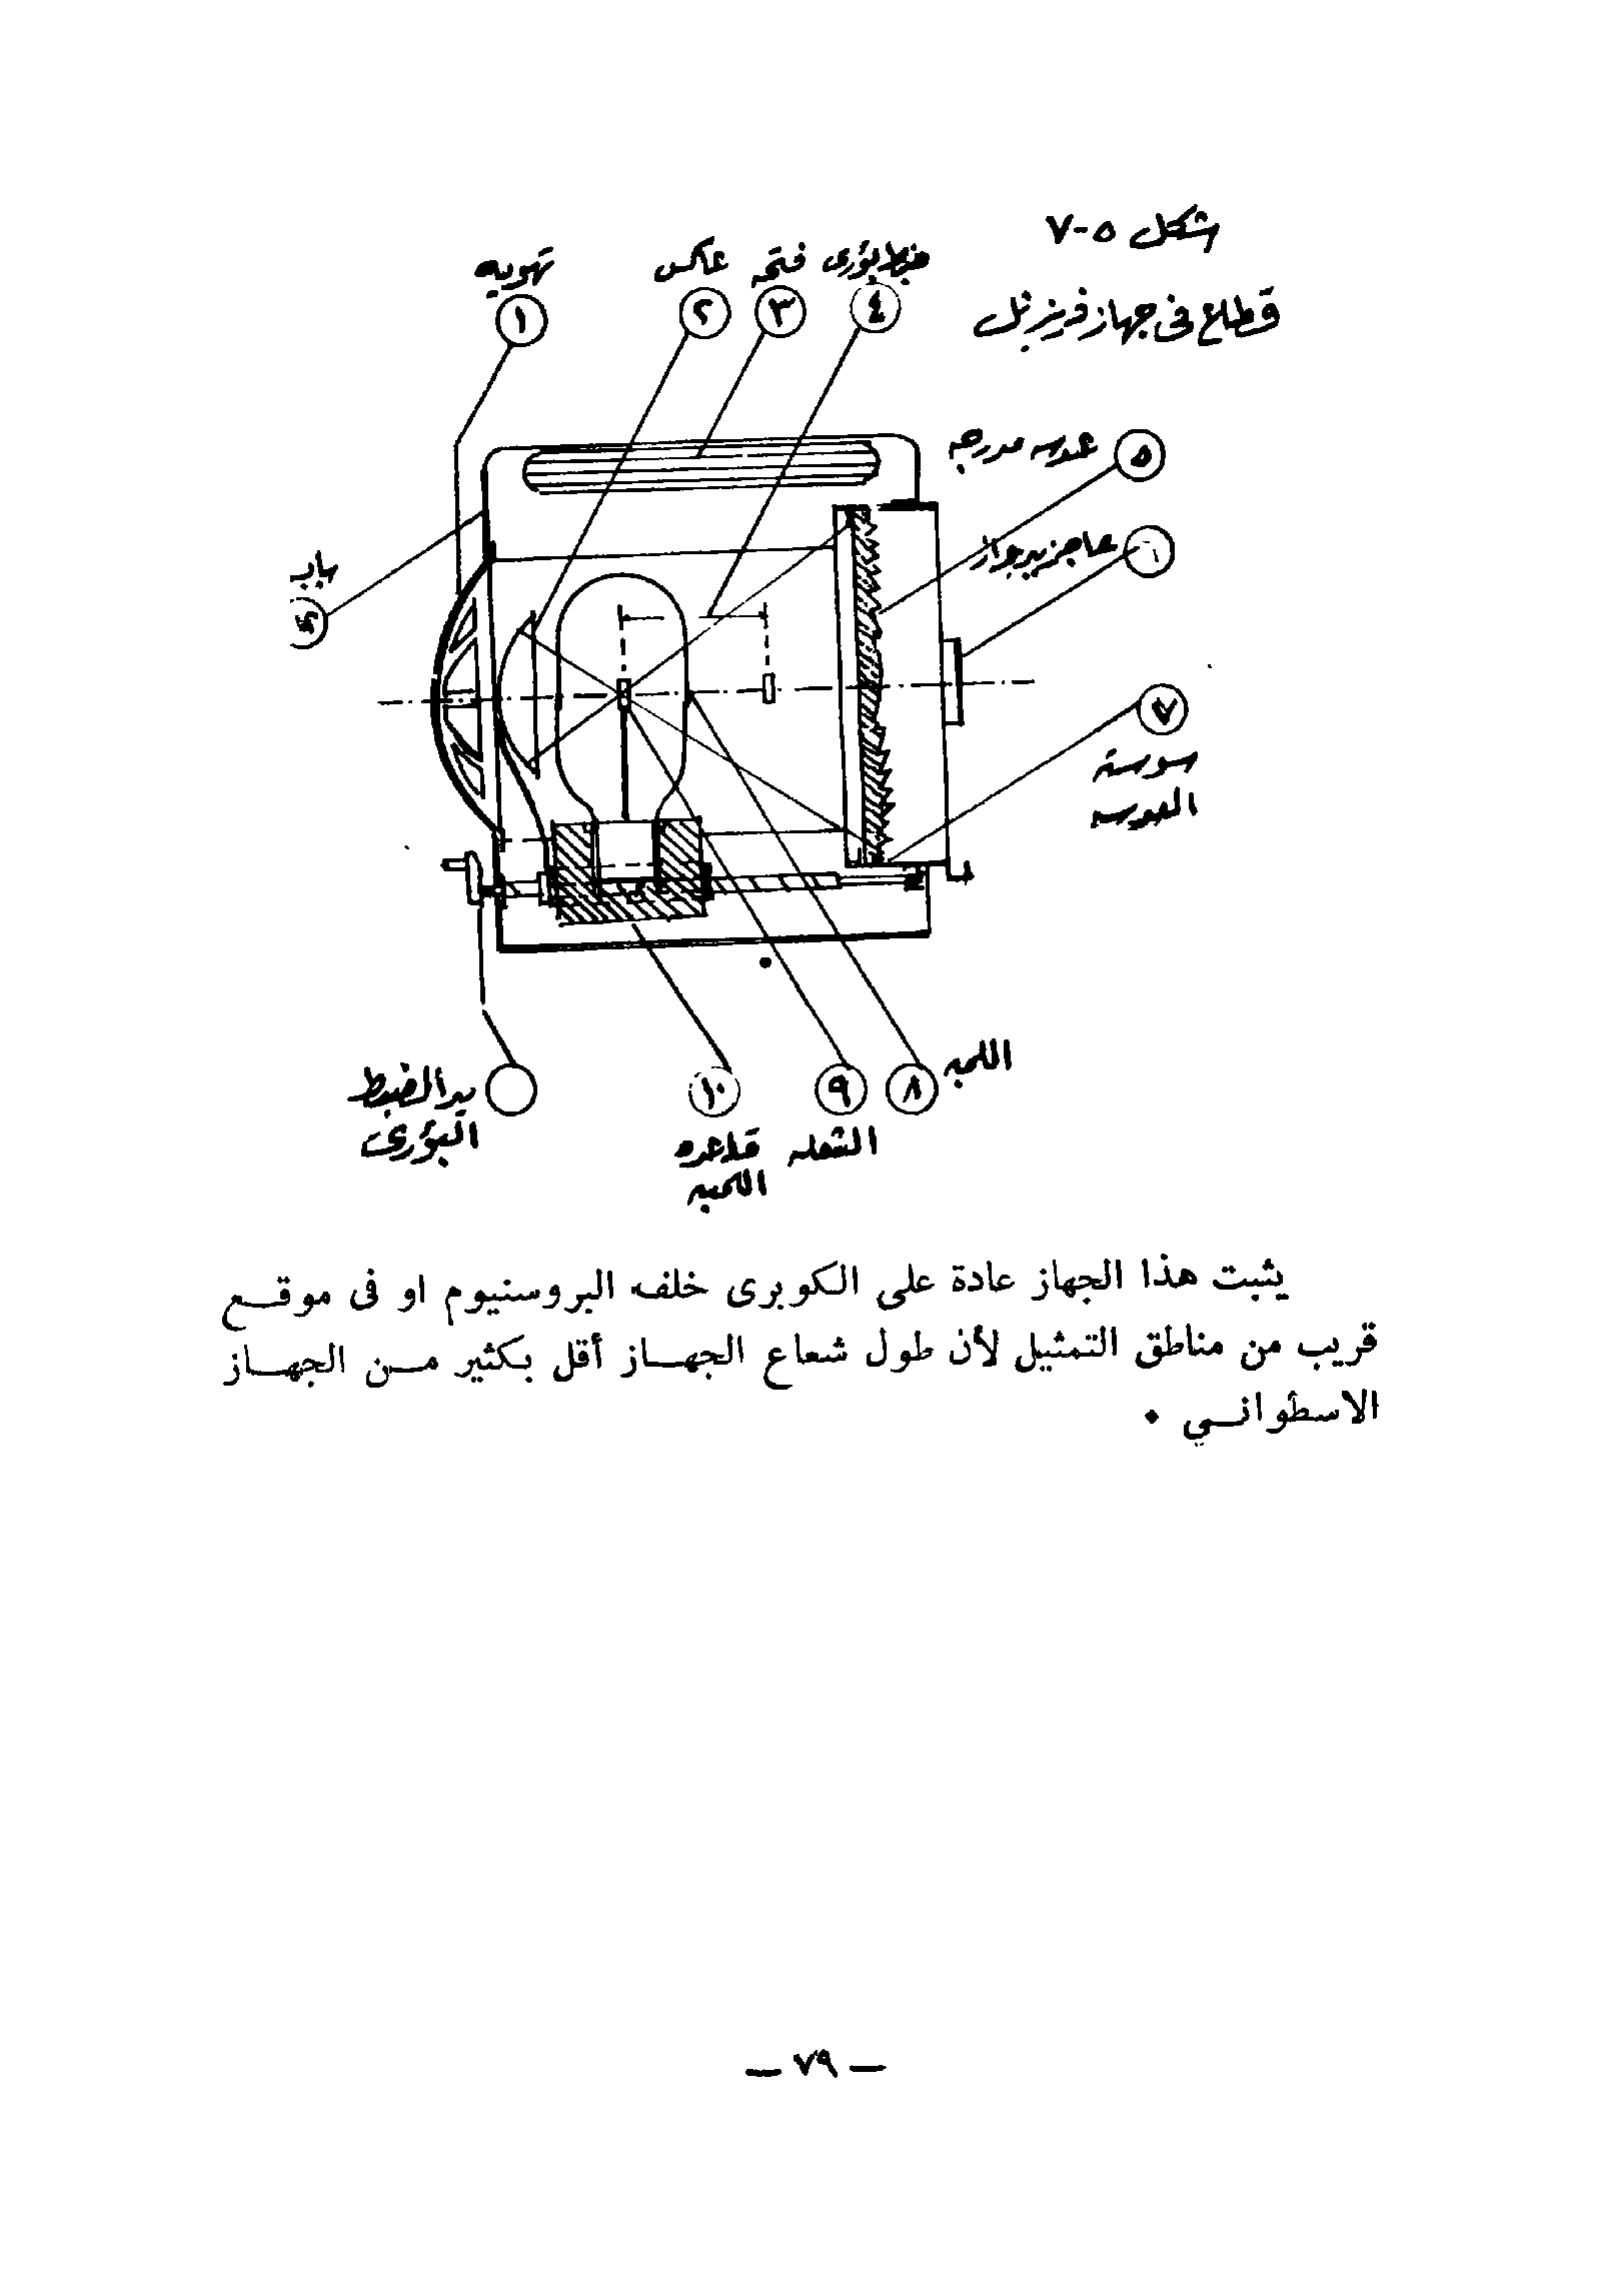 شكل ٥-٧
قطاع فى جهاز فريزنل
تهويه
١
عاكس
٢
فتحه
٣
ضبط بؤرى
٤
عدسه مدرجه
٥
٦
باب
سوسته
العدسه
٧
اللمبه
٨
الشعله
٩
قاعده
اللمبه
١٠
يد الضبط
البؤرى
يثبت هذا الجهاز عادة على الكوبرى خلف البروسنيوم او فى موقــع
قريب من مناطق التمثيل لأن طول شعاع الجهــاز أقل بكثير مــن الجهــاز
الاسطوانــي .
— ٧٩ —